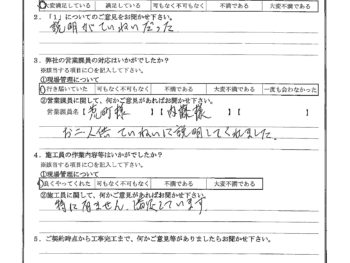 大変満足している 満足している 可もなく不可もなく 不満である 大変不満である
2．「1」についてのご意見をお聞かせ下さい。
説明がていねいだった
3．弊社の営業課員の対応はいかがでしたか？
※該当する項目に○を記入して下さい。
①現場管理について
行き届いていた 可もなく不可もなく 不満である 大変不満である 一度も会わなかった
②営業課員に関して、何かご意見があればお聞かせ下さい。
営業課員名【 兎町様 】【 内藤様 】
お二人供ていねいに説明してくれました。
4．施工員の作業内容等はいかがでしたか？
※該当する項目に○を記入して下さい。
①現場管理について
良くやってくれた 可もなく不可もなく 不満である 大変不満である
②施工員に関して、何かご意見があればお聞かせ下さい。
特に有ません、満足しています。
5．ご契約時点から工事完工まで、何かご意見等がありましたらお聞かせ下さい。